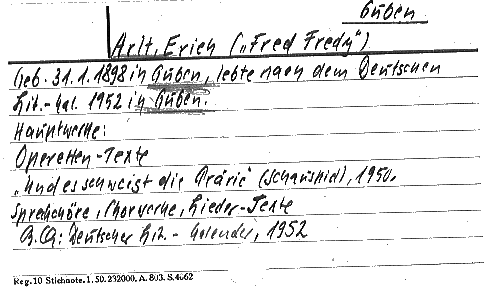 Guben
Arlt, Erich („Fred Fredy“)
Geb. 31.1.1898 in Guben, lebte nach dem Deutschen
Lit.-Kal. 1952 in Guben.
Hauptwerke:
Operetten-Texte
„Und es schweigt die Prärie“ (Schauspiel), 1950.
Sprechchöre, Chorwerke, Lieder-Texte
Deutscher Lit.-Kalender, 1952
Reg. 10 Stichnote. 1. 50. 232000. A. 803. S. 4062